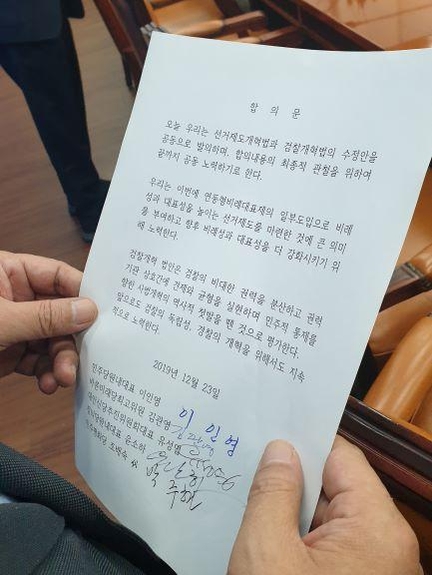 합 의 문
오늘 우리는 선거제도개혁법과 검찰개혁법의 수정안을
공동으로 발의하며, 합의내용의 최종적 관철을 위하여
끝까지 공동 노력하기로 한다.
우리는 이번에 연동형비례대표제의 일부도입으로 비례
성과 대표성을 높이는 선거제도를 마련한 것에 큰 의미
를 부여하고 향후 비례성과 대표성을 더 강화시키기 위
해 노력한다.
검찰개혁 법안은 검찰의 비대한 권력을 분산하고 권력
기관 상호간에 견제와 균형을 실현하며 민주적 통제를
향한 사법개혁의 역사적 첫발을 뗀 것으로 평가한다.
앞으로도 검찰의 독립성, 경찰의 개혁을 위해서도 지속
적으로 노력한다.
2019년 12월 23일
민주당원내대표 이인영
바른미래당최고위원 김관영
대안신당추진위원회대표 유성엽
정의당원내대표 윤소하
민주평화당
이 인 영
박 주 현